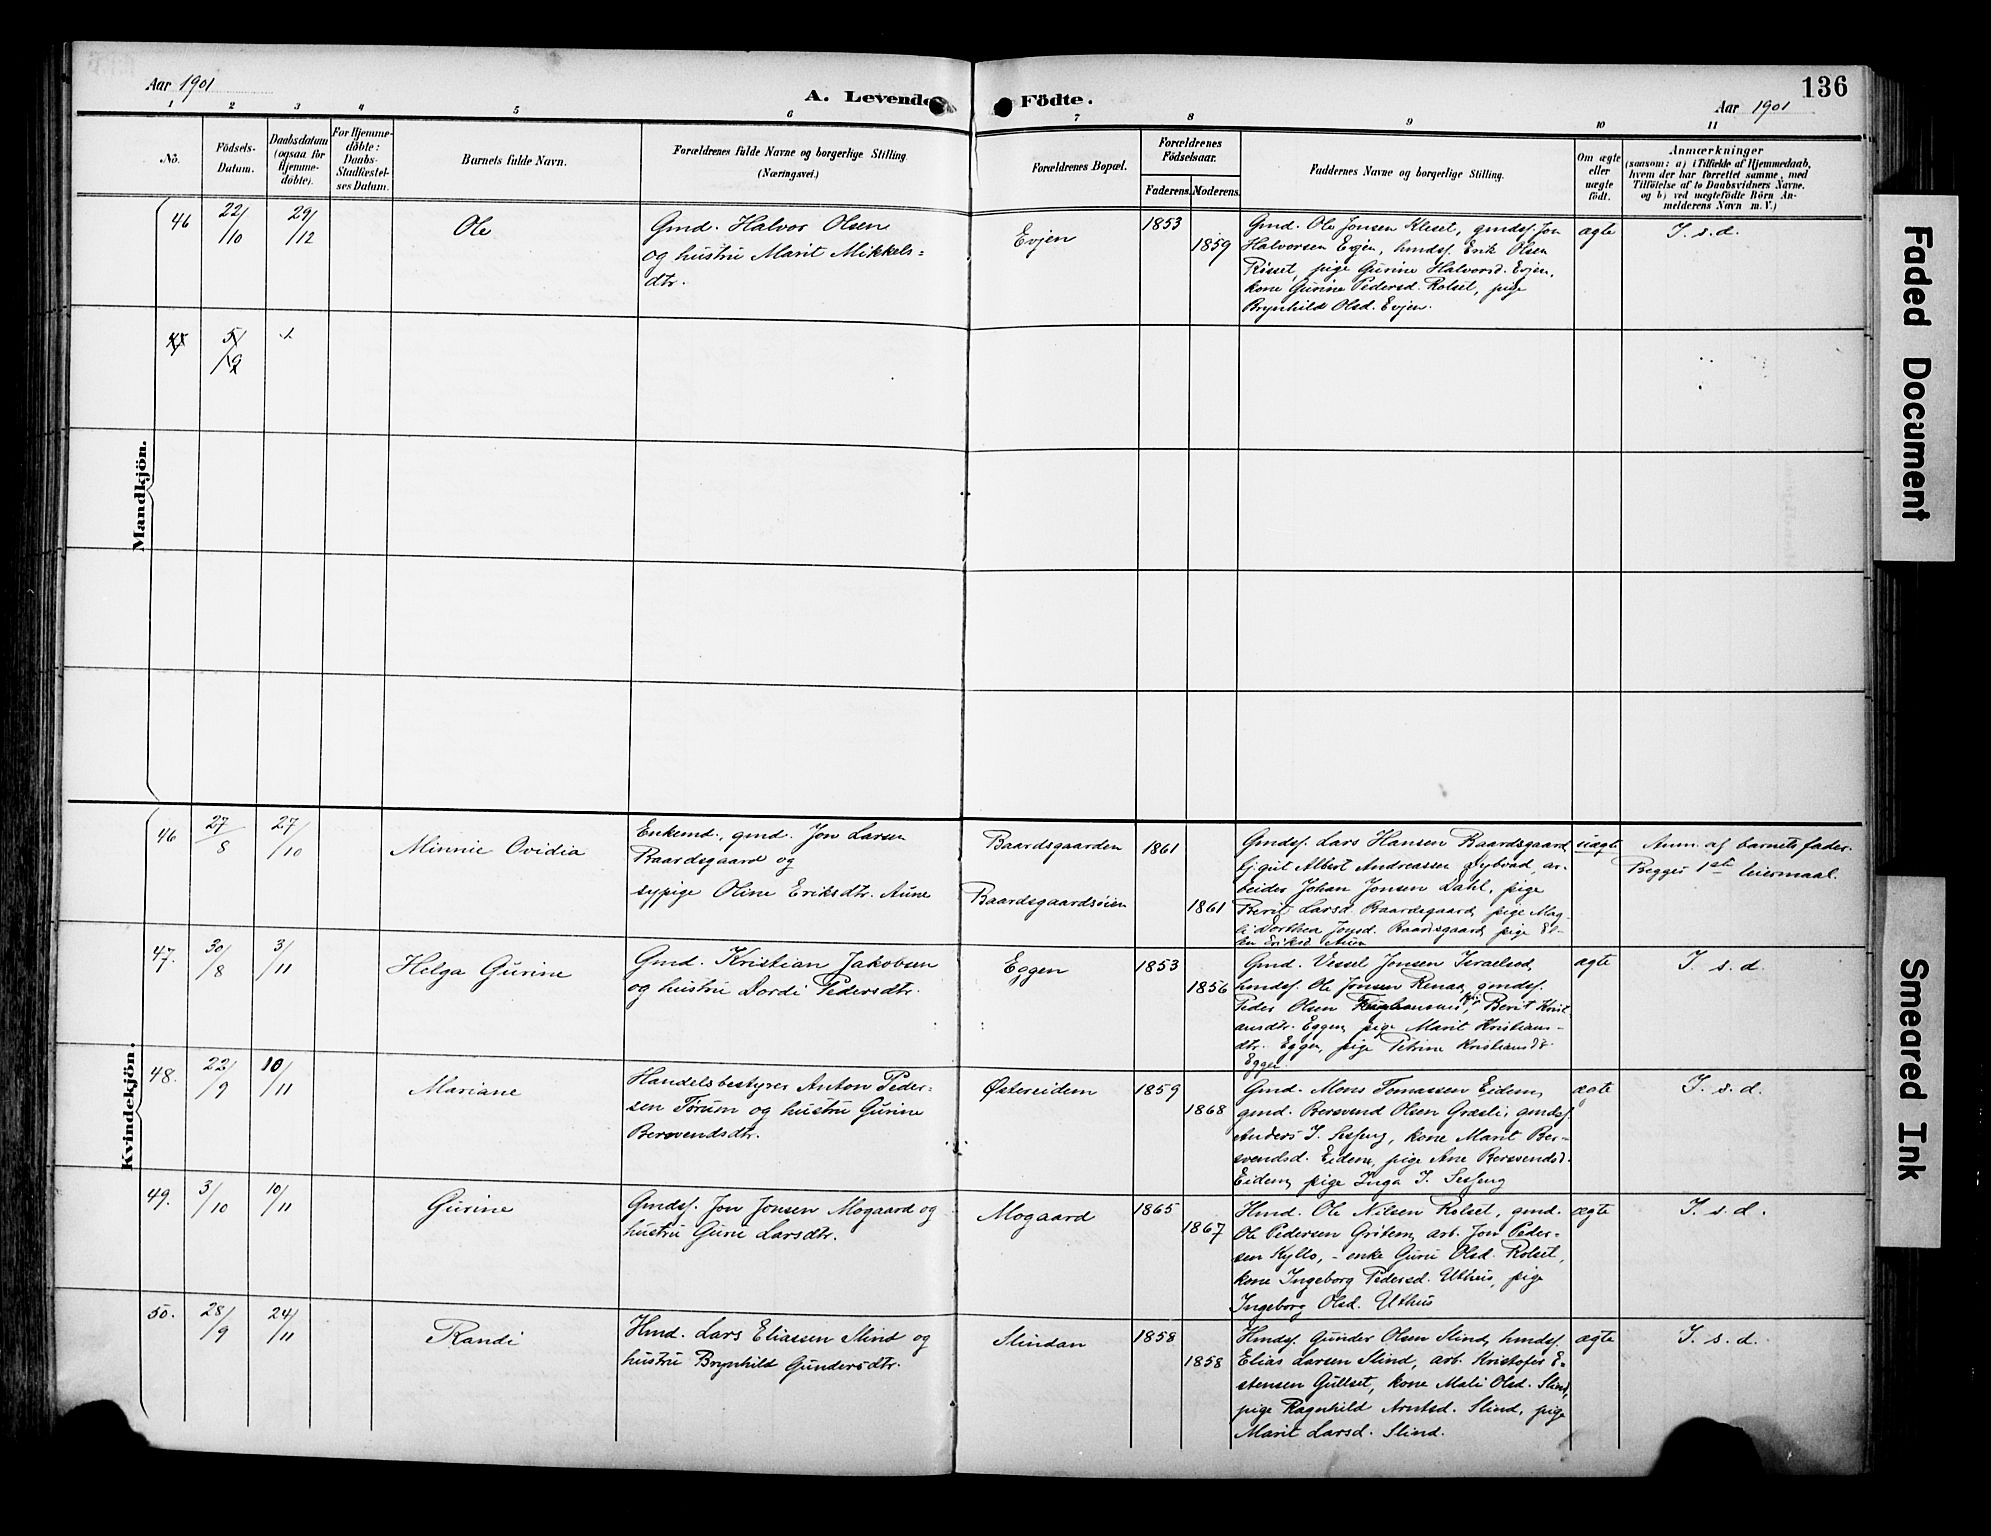 136
Aar 1901
A. Levende Födte.
Aar 1901
1 2 3 4 5 6 7 8 9 10 11
No.
Födsels-
Datum.
Daabsdatum
(ogsaa for
Hjemme-
döbte).
For Hjemme-
döbte:
Daabs-
Stadfæstel-
ses Datum.
Barnets fulde Navn.
Forældrenes fulde Navne og borgerlige Stilling
(Næringsvei.)
Forældrenes Bopæl.
Forældrenes
Födselsaar.
Faderens. Moderens.
Faddernes Navne og borgerlige Stilling.
Om ægte
eller
uægte
födt.
Anmærkninger
(saasom: a) i Tilfælde af Hjemmedaab,
hvem der har forrettet samme, med
Tilföielse af to Daabsvidners Navne.
og b) ved uægtefödte Börn An-
melderens Navn m. V.)
Mandkjön.
46
22/10
29/12
Ole
Gmd. Halvor Olsen
og hustru Marit Mikkels=
dtr.
Evjen
1853
1859
Gmd. Ole Jonsen Klesel, gmdss. Jon
Halvorsen Evjen, hmdss. Erik Olsen
Risset, pige Gurine Halvorsd. Evjen,
kone Gurine Pedersd. Rolset, pige
Brynhild Olsd. Evjen.
ægte
I. s. d.
47
5/12
Kvindekjön.
46
27/8
27/10
Minnie Ovidia
Enkemd., gmd. Jon Larsen
Baardsgaard og
sypige Oline Eriksdtr. Aune
Baardsgaarden
Baardsgaardsøien
1861
1861
Gmdss. Lars Hansen Baardsgaard,
gut Albert Andreassen Dybvad, ar-
beider Johan Jonsen Dahl, pige
Berit Larsd. Baardsgaard, pige Mag-
li Dorthea Jonsd. Baardsgaard, pige El-
len Eriksd. Aune
uægte
Anm. af barnets fader.
Begges 1ste leiermaal.
47.
30/8
3/11
Helga Gurine
Gmd. Kristian Jakobsen
og hustru Dordi Pedersdtr.
Eggen
1853
1856
Gmd. Vessel Jonsen Israelsd,
hmdss. Ole Jonsen Renaa, gmdss.
Peder Olsen Berit Krist
ansdtr. Eggen, pige Marit Kristians-
dtr. Eggen, pige Petrine Kristiansdtr
Eggen.
ægte
I. s. d.
48.
22/9
10/11
Mariane
Handelsbestyrer Anton Peder-
sen Tørum og hustru Gurine
Bersvendsdtr.
Østereidem
1859
1868
Gmd. Mons Tomassen Eidem,
gmd. Bersvend Olsen Græsli, gmdss.
Anders J. Sesseng, kone Marit Ber-
svendsd. Eidem, pige Ane Bersvendsd.
Eidem, pige Inga J. Sesseng
ægte
I. s. d.
49.
3/10
10/11
Gurine
Gmdss. Jon Jonsen Mogaard og
hustru Guru Larsdtr.
Mogaard
1865
1867
Hmd. Ole Nilsen Rolset, gmd.
Ole Pedersen Gritem, arb. Jon Peder-
sen Kyllo, - enke Guru Olsd. Rolset,
kone Ingeborg Pedersd. Uthus, pige
Ingeborg Olsd. Uthus
ægte
I. s. d.
50.
28/9
24/11
Randi
Hmd. Lars Eliassen Slind og
hustru Brynhild Gundersdtr.
Slindan
1858
1858
Hmdss. Gunder Olsen Slind, hmdss.
Elias Larsen Slind, arb. Kristofer E-
stensen Gullset, kone Mali Olsd. Slind,
pige Ragnhild Arntsd. Slind, pige
Marit Larsd. Slind.
ægte
I. s. d.
Faded Document
Smeared Ink